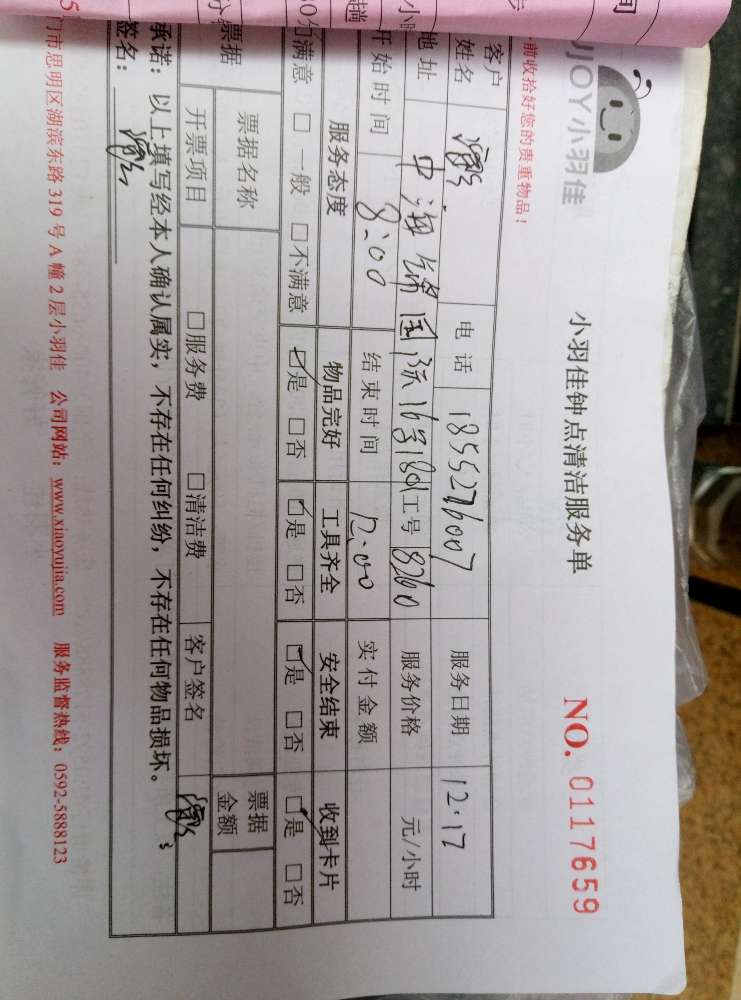 JOY小羽佳
小羽佳钟点清洁服务单
NO. 0117659
前收拾好您的贵重物品！
客户姓名 电话 18552716007 服务日期 12.17
地址 中海锦国际16号1801 工号 8260 服务价格 元/小时
开始时间 8:00 结束时间 12:00 实付金额
服务态度 物品完好 工具齐全 安全结束 收到卡片
满意 □一般 □不满意 ☑是 □否 ☑是 □否 ☑是 □否 ☑是 □否
票据 票据名称 票据金额
开票项目 □服务费 □清洁费 客户签名
承诺：以上填写经本人确认属实，不存在任何纠纷，不存在任何物品损坏。
签名：
门市思明区湖滨东路319号A幢2层小羽佳 公司网站：www.xiaoyujia.com 服务监督热线：0592-5888123